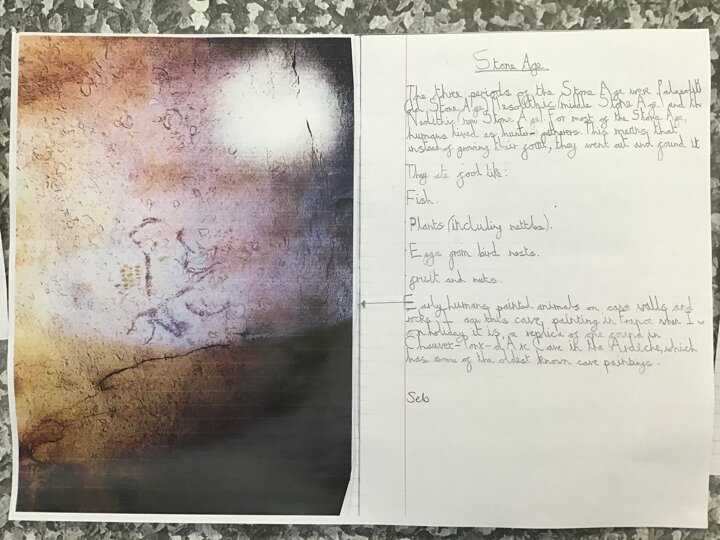 Stone Age
The three periods of the Stone Age were Palaeolith
Old Stone Age), Mesolithic (middle Stone Age) and the
Neolithic (new Stone Age). For most of the Stone Age,
humans lived as hunter gatherers. This means that
instead of growing their food, they went out and found it
They ate food like:
Fish.
Plants (including nettles).
Eggs from bird nests.
fruit and nuts.
Early humans painted animals on cave walls and
rocks. I saw this cave painting in when I
on holiday, it is a replica of one found in
Chauvet-Pont-d'Arc Cave in the Ardèche, which
has some of the oldest known cave paintings.
Seb